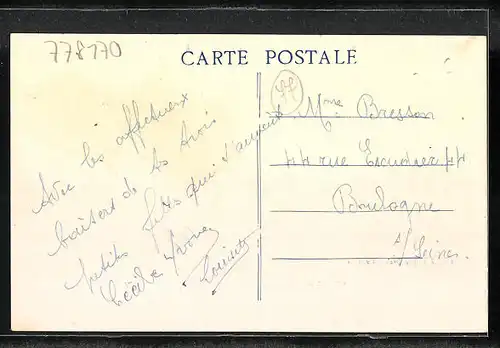 778170
CARTE POSTALE
Avec les affectueux
baisers de tes trois
petites filles qui t'aiment
Cécile Yvonne
Mme Bresson
44 rue 44
Boulogne
s/Seine.